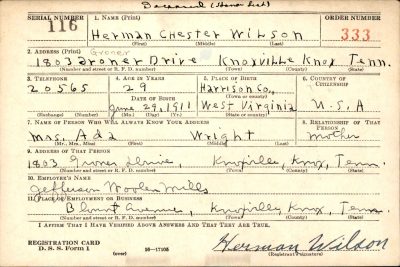 Deceased (Honor List)
SERIAL NUMBER 1. NAME (Print) ORDER NUMBER
116 Herman Chester Wilson 333
(First) (Middle) (Last)
2. ADDRESS (Print) Groner
1803 Groner Drive Knoxville Knox Tenn.
(Number and street or R. F. D. number) (Town) (County) (State)
3. TELEPHONE 4. AGE IN YEARS 5. PLACE OF BIRTH 6. COUNTRY OF CITIZENSHIP
20565 29 Harrison Co.,
DATE OF BIRTH (Town or county)
June 29, 1911 West Virginia U.S.A
(Exchange) (Number) (Mo.) (Day) (Yr.) (State or country)
7. NAME OF PERSON WHO WILL ALWAYS KNOW YOUR ADDRESS 8. RELATIONSHIP OF THAT PERSON
Mrs. Ada Wright Mother
(Mr., Mrs., Miss) (First) (Middle) (Last)
9. ADDRESS OF THAT PERSON
1803 Drive Knoxville, Knox, Tenn.
(Number and street or R. F. D. number) (Town) (County) (State)
10. EMPLOYER'S NAME
Jefferson Woolen Mills
11. PLACE OF EMPLOYMENT OR BUSINESS
Blount Avenue, Knoxville, Knox, Tenn.
(Number and street or R. F. D. number) (Town) (County) (State)
I AFFIRM THAT I HAVE VERIFIED ABOVE ANSWERS AND THAT THEY ARE TRUE.
REGISTRATION CARD
D. S. S. Form 1 (over) 16—17105 Herman Wilson
(Registrant's signature)